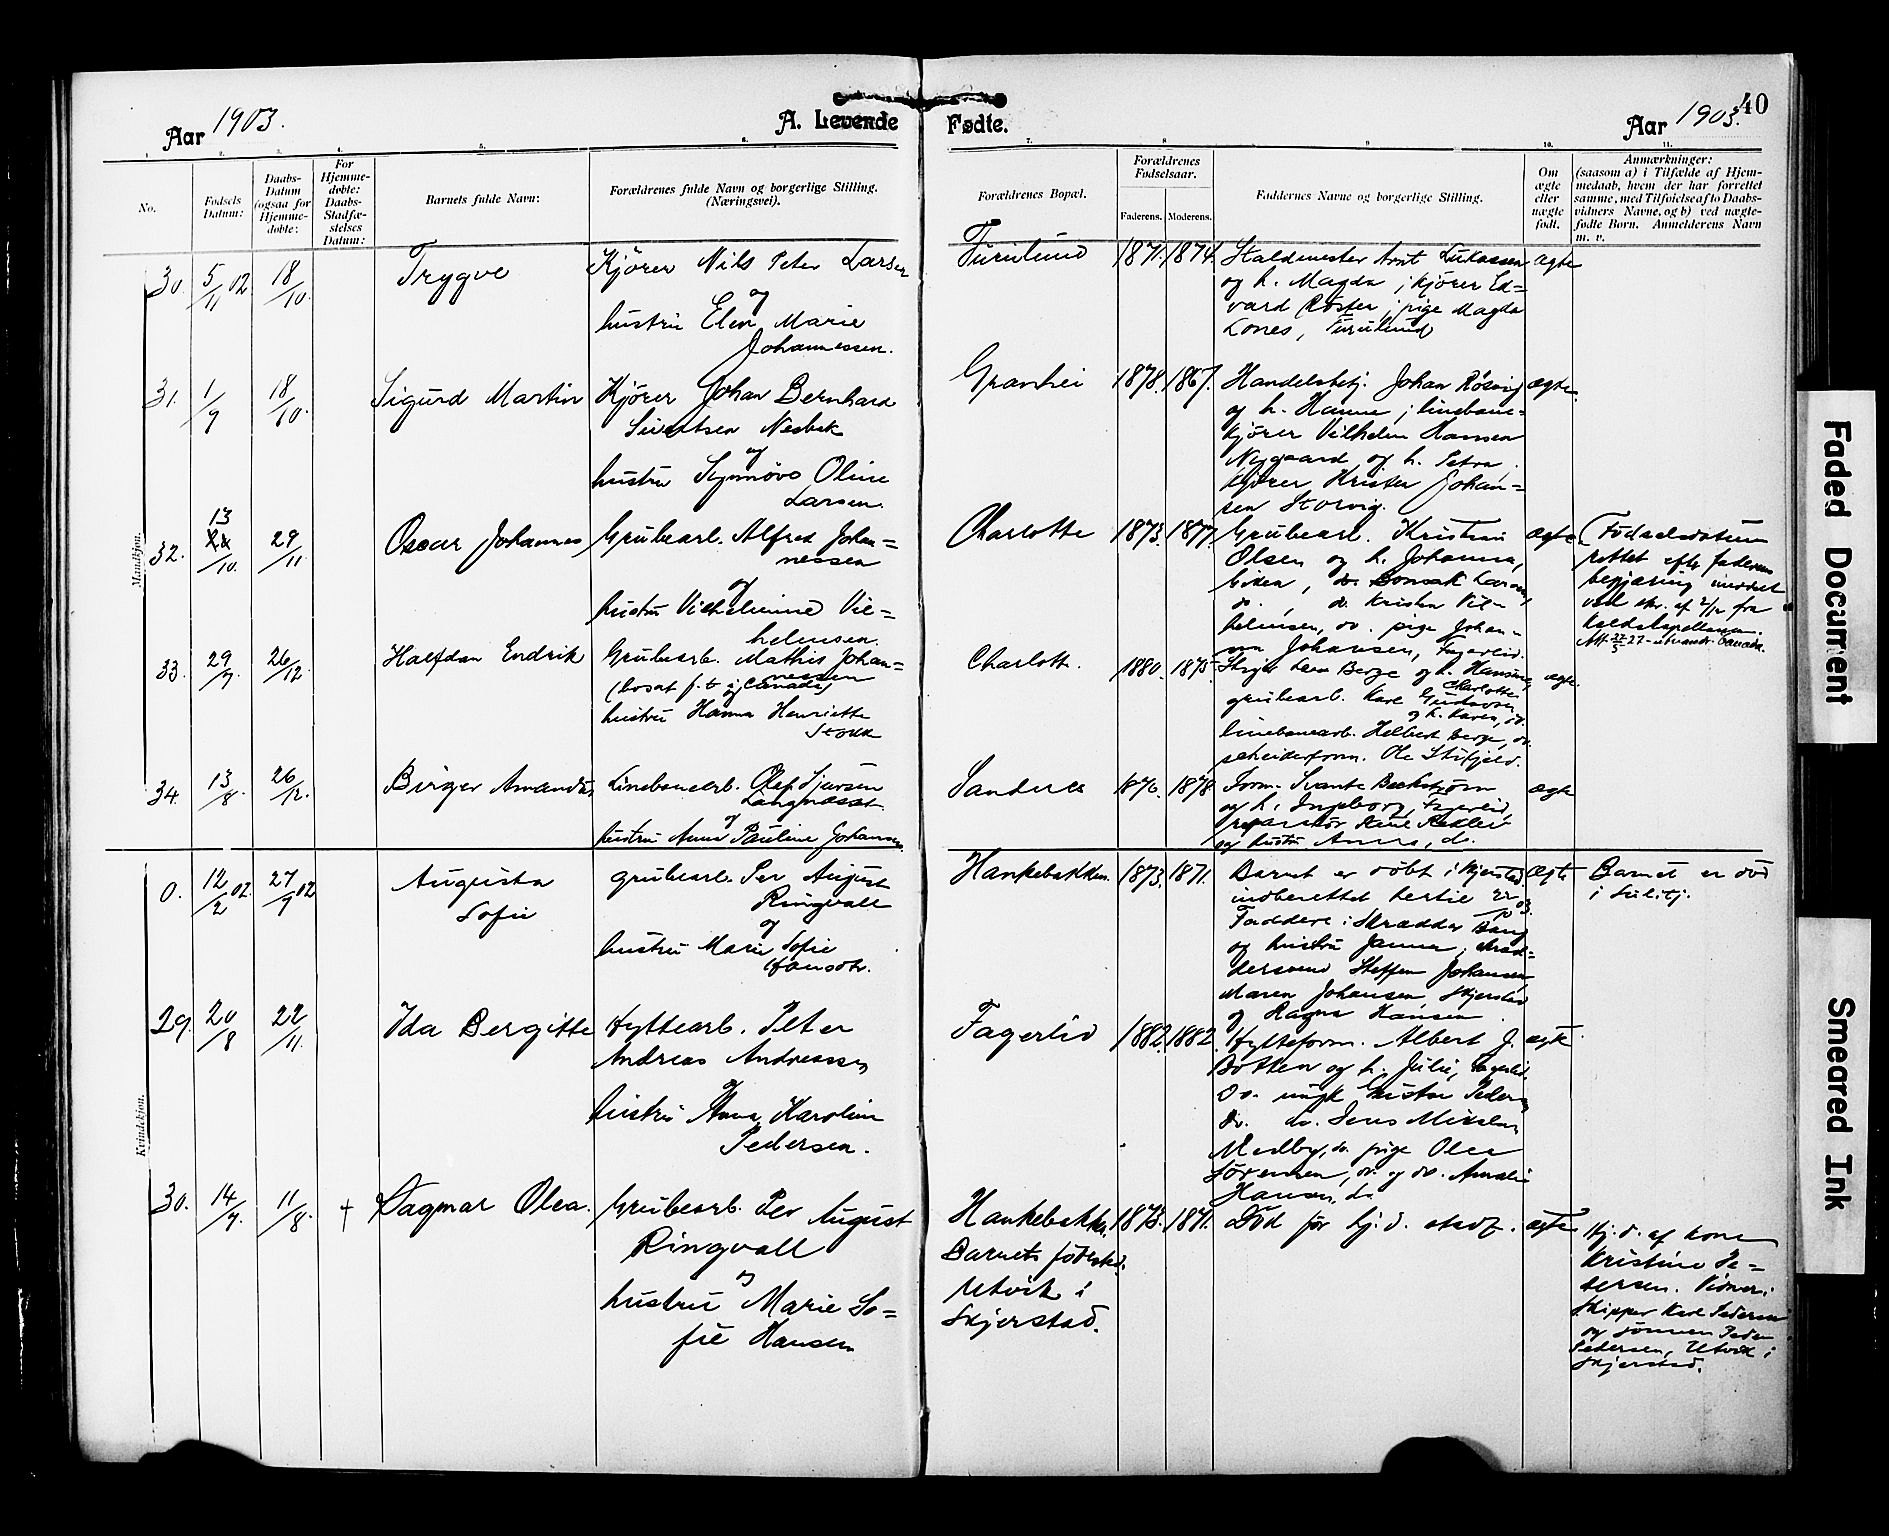 Aar 1903.
A. Levende
Fødte.
Aar 1903.
40
1.
2.
3.
4.
5.
6.
7.
8
9
10.
11.
No.
Fødsels
Datum:
Daabs-
Datum
(ogsaa for
Hjemme-
døbte:
For
Hjemme-
døbte:
Daabs-
Stadfæ-
stelses
Datum:
Barnets fulde Navn:
Forældrenes fulde Navn og borgerlige Stilling.
(Næringsvei).
Forældrenes Bopæl.
Forældrenes
Fødselsaar.
Faderens.
Moderens.
Faddernes Navne og borgerlige Stilling.
Om
ægte
eller
uægte
født.
Anmærkninger:
(saasom a) i Tilfælde af Hjem-
medaab, hvem der har forrettet
samme, med Tilføielse af to Daabs-
vidners Navne, og b) ved uægte-
fødte Børn. Anmelderens Navn
m. v.
Mandkjøn.
30. 5/11 02. 18/10. Trygve
Kjører Nils Peter Larsen
og
hustru Elen Marie
Johannessen.
Furulund 1871. 1874.
Staldmester Arnt Lukassen
og h. Magda ; kjører Ed=
vard Røster ; pige Magda
Lones, Furulund
ægte
31. 1/9 18/10. Sigurd Martin
Kjører Johan Bernhard
Sivertsen Nesbak
og
hustru Synnøve Oline
Larsen.
Granhei 1878. 1867.
Handelsbetj. Johan Røsvig
og h. Hanna ; linebane=
kjører Vilhelm Hansen
Nygaard og h. Petra.
Kjører Krister Johan=
sen Storvig.
ægte.
32. 13/10. 29/11. Oscar Johannes
Grubearb. Alfred Johan=
nessen
og
hustru Vilhelmine Vil=
helmsen.
Charlotte 1873. 1877.
Grubearb. Kristian
Olsen og h. Johanna,
do. Kristen Vil=
helmsen, do. pige Johan=
na Johansen, Fagerlid.
ægte
(Fødselsdatum
rettet efter faderens
begjæring
ved skr. af 2/12 fra
33. 29/9. 26/12. Halfdan Endrik
Grubearb. Mathis Johan=
nessen
(bosat f. t. i Canada)
og
hustru Hanna Henriette
Stokk
Charlott. 1880. 1875.
Berge og h. Hansine,
Charlotte
grubearb. Karl Gustavsen
og h. Karen, do.
linebanearb. Helbert Berge, do.
scheideform. Ole Stifjeld.
ægte.
34. 13/8. 26/12. Birger Amandus
Linebanearb. Olaf Sjursen
Langnæsset
og
hustru Anna Pauline Johansen.
Sandnes 1876. 1878
Form. Svante Beckstrøm
og h. Ingeborg, Fagerlid,
reparatør
og hustru Anna, do.
ægte
Kvindekjøn.
0. 12/2 02. 27/9 02 Augusta
Sofie
grubearb. Per August
Ringvall
og
hustru Marie Sofie
Hansdtr.
Hankebakken. 1873. 1871.
Barnet er døbt i Skjerstad.
indberettet hertil 22/10 03.
Faddere : Skrædder Bang
og hustru Janna, skræd=
dersvend Steffen Johansen,
Maren Johansen, Skjerstad
og Ragna Hansen.
Ægte
Barnet er død
i Sulitj.
29. 20/8 22/11. Ida Bergitte
Hyttearb. Peter
Andreas Andreassen
og
hustru Anna Karoline
Pedersen.
Fagerlid 1882. 1882.
Hytteform. Albert J.
Botten og h. Julie, Fagerlid.
Do. ungk. Gustav Pedersen,
do. do. Jens Mikelsen
Medby, do. pige Olea
Sørensen, do. og do. Amalie
Hansen, do.
ægte
30. 14/7. 11/8. † Dagmar Olea.
Grubearb. Per August
Ringvall
og
hustru Marie So=
fie Hansen
Hankebakken.
Barnets fødested.
Utvik i
Skjerstad.
1873. 1871.
Død før hj. d. stadf.
ægte
Hj. d. af kone
Kristine Pe=
dersen. Vidner :
Skipper Karl Pedersen
og sønnen Peder
Pedersen, Utvik i
Skjerstad.
Faded Document
Smeared Ink